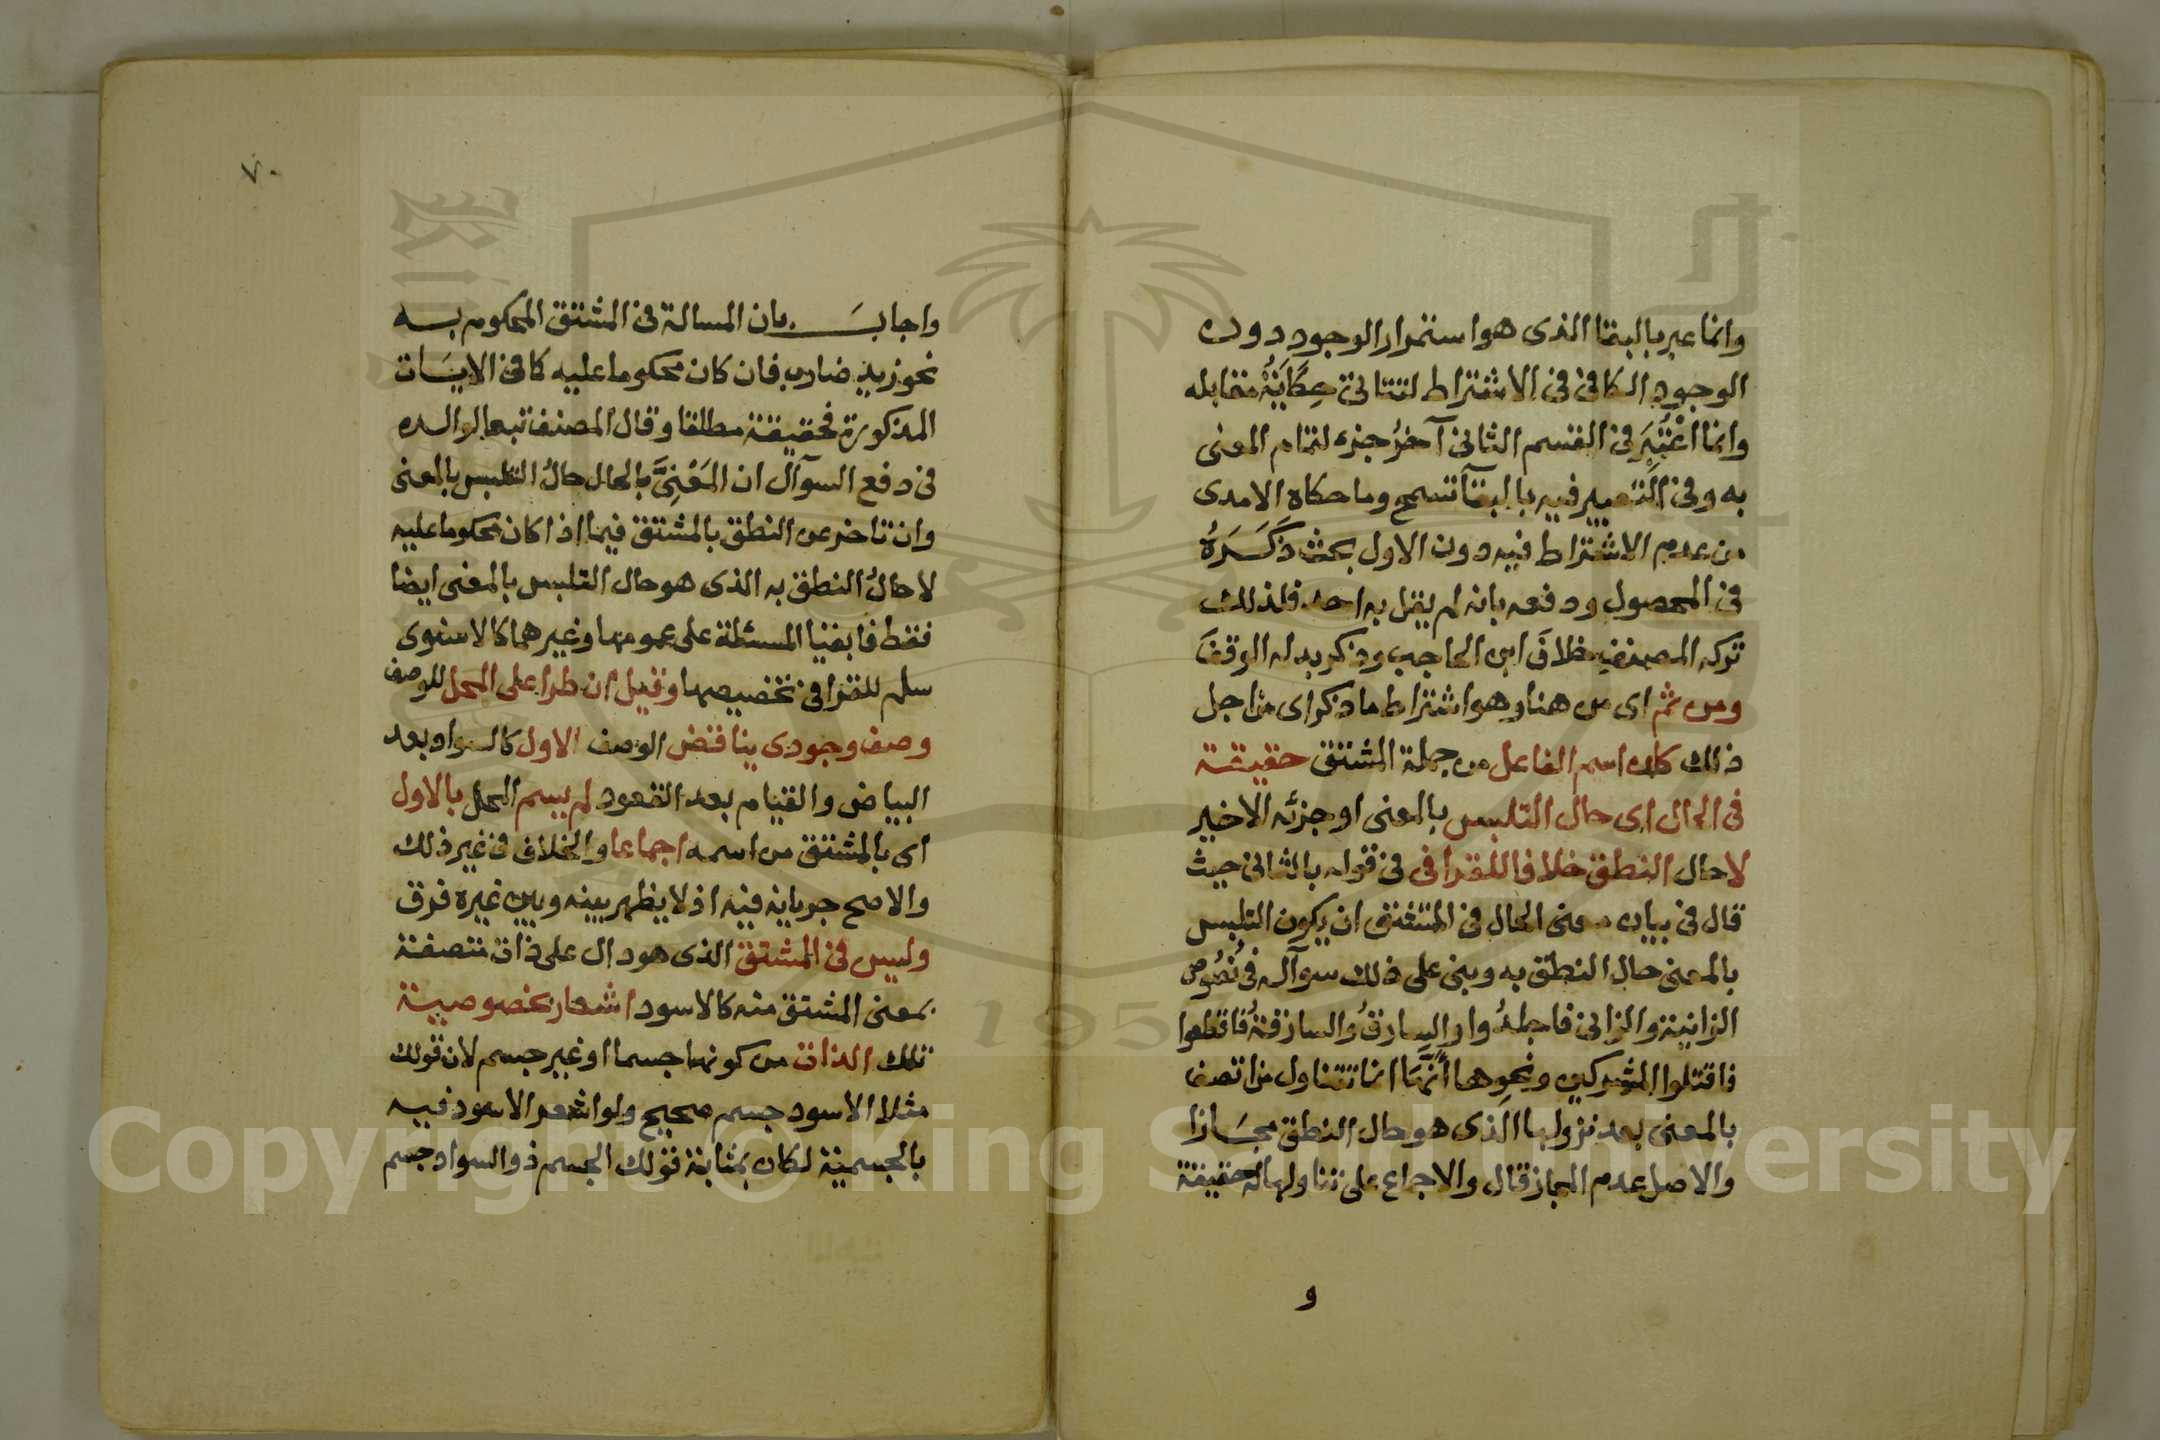 وانما عبر بالبقا الذى هو استمرار الوجود دون
الوجود الكافى فى الاشتراط لتتاتى حِكَايَةُ مقابله
وانما اعْتُبِرَ فى القسم الثانى آخرُ جزء لتمام المعنى
به وفى التعبير فيه بالبقآ تسمح وما حكاه الامدى
من عدم الاشتراط فيه دون الاول بحث ذَكَرَهُ
فى المحصول ودفعه بانه لم يقل به احد فلذلك
تركه المصنف خلافَ ابن الحاجب وذكر بدله الوقفَ
ومن ثم اى من هنا وهو اشتراط ما ذكر اى من اجل
ذلك كان اسم الفاعل من جملة المشتق حقيقة
فى الحال اى حال التلبس بالمعنى او جزئه الاخير
لا حال النطق خلافا للقرافى فى قوله بالثانى حيث
قال فى بيان معنى الحال فى المشتق ان يكون التلبس
بالمعنى حال النطق به وبنى على ذلك سوآله فى نُصُوص
الزانية والزانى فاجلدُوا والسارقُ والسارقةُ فاقطعوا
فاقتلوا المشركين ونحوها أنَّهَا انما تتناول من اتصف
بالمعنى بعد نزولها الذى هو حال النطق مجَازا
والاصل عدم المجاز قال والاجماع على تناولها له حقيقة
و
٧٠
واجابَ بان المسالة فى المشتق المحكوم به
نحو زيد ضارب فان كان محكوما عليه كما فى الايَات
المذكورة فحقيقة مطلقا وقال المصنف تبعا لوالده
فى دفع السوآل ان المَعْنِىَّ بالحال حالُ التلبس بالمعنى
وان تاخر عن النطق بالمشتق فيما اذا كان محكوما عليه
لا حالُ النطق به الذى هو حال التلبس بالمعنى ايضا
فقط فابقيا المسئلة على عمومها وغيرهما كالاسنوى
سلم للقرافى تخصيصها وقيل ان طرا على المحل للوصف
وصف وجودى يناقض الوصف الاول كالسواد بعد
البياض والقيام بعد القعود لم يسم المحل بالاول
اى بالمشتق من اسمه اجماعا والخلاف فى غير ذلك
والاصح جريانه فيه اذ لا يظهر بينه وبين غيره فرق
وليس فى المشتق الذى هو دال على ذات متصفة
بمعنى المشتق منه كالاسود اشعار بخصوصية
تلك الذات من كونها جسما او غير جسم لان قولك
مثلا الاسود جسم صحيح ولو اشعر الاسود فيه
بالجسمية لكان بمثابة قولك الجسم ذو السواد جسم
Copyright © King Saud University
1957